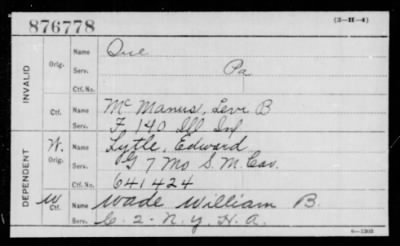 876778
(3-H-4)
INVALID
Orig.
Name Que
Serv. Pa
Ctf. No.
Ctf.
Name McManus, Levi B
Serv. F 140 Ill Inf
DEPENDENT
W. Orig.
Name Lytle, Edward
Serv. G 7 Mo S. M. Cav.
Ctf. No. 641424
W Ctf.
Name Wade William B.
Serv. C. 2 - N. Y. H. A.